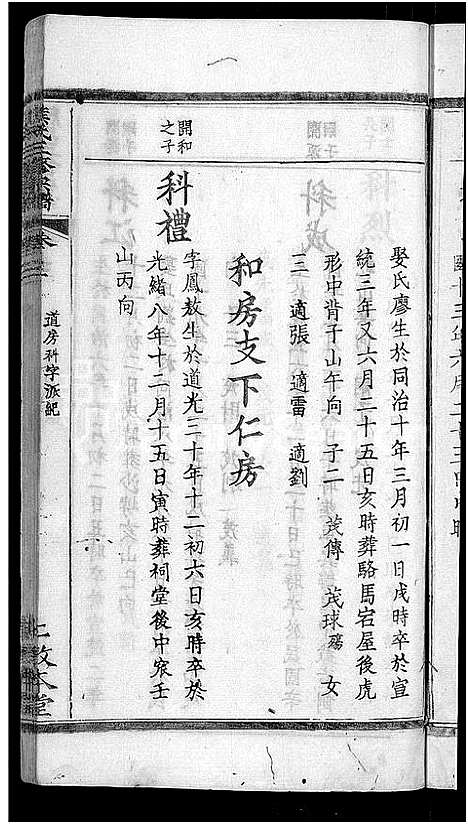 娶氏廖生於同治十年三月初一日戌時卒於宣
統三年又六月二十五日亥時葬駱馬宕屋後虎
形中背子山午向 子二 茂傳 茂球殤 女
三 適張 適雷 適劉
和房支下仁房
開和之子
科禮
字鳳敖生於道光三十年十二初六日亥時卒於
光緒八年十二月十五日寅時葬祠堂後中㝡壬
山丙向
道房科字派紀